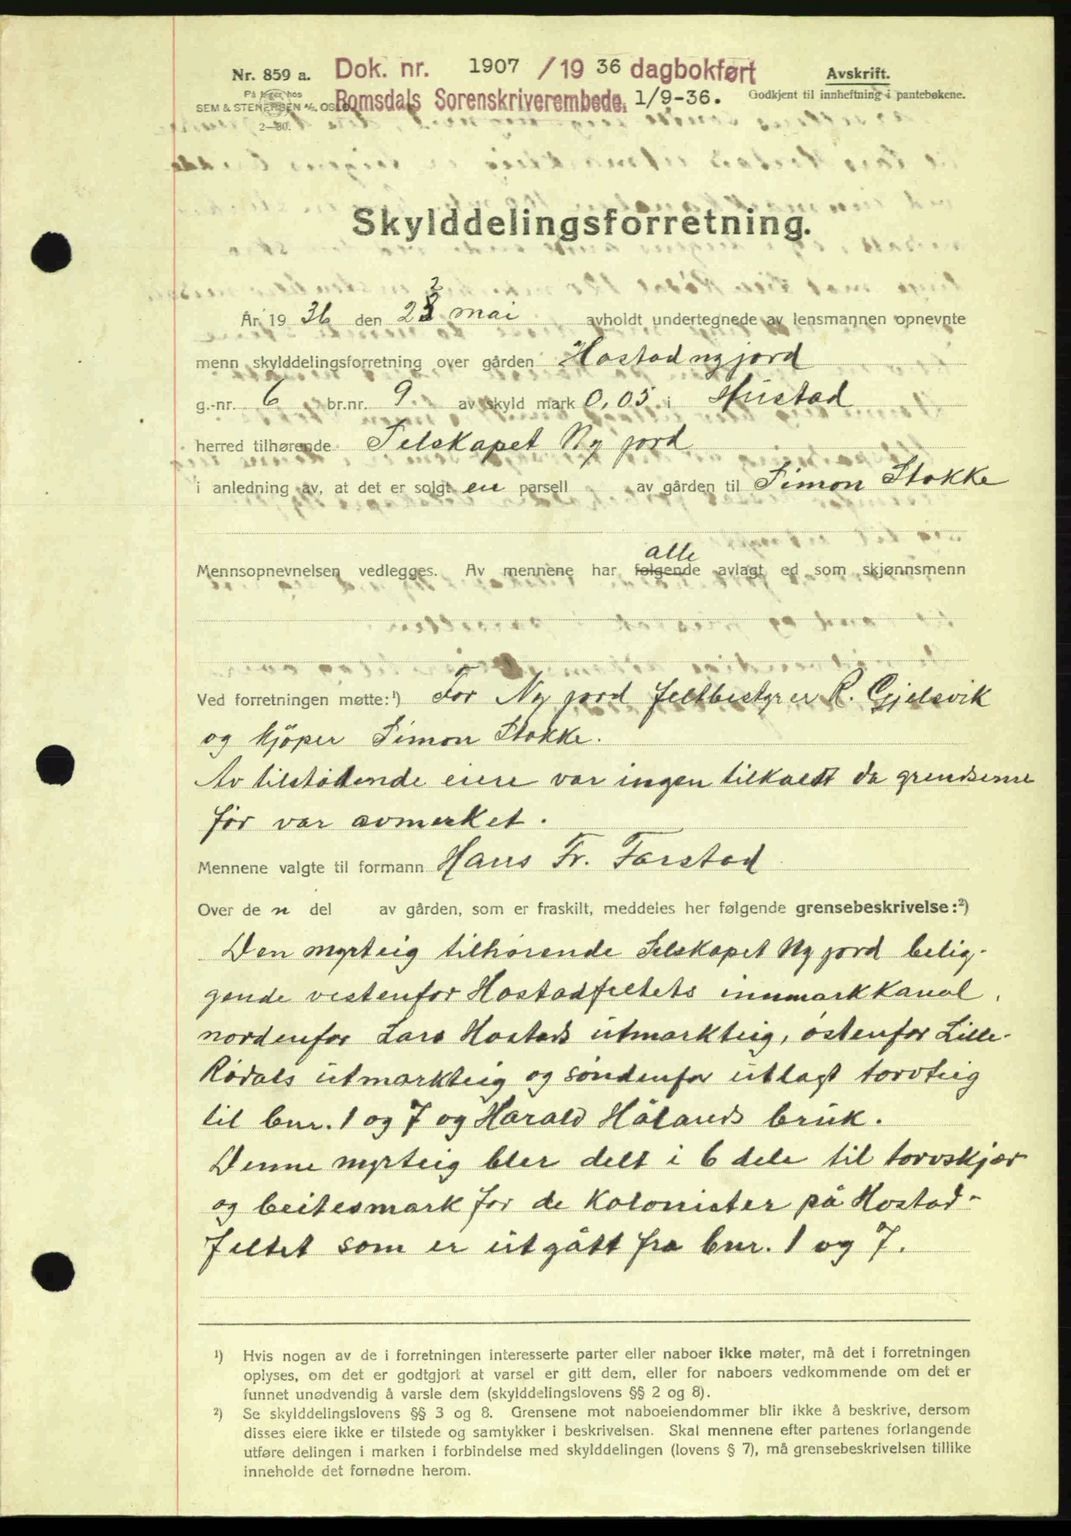 Nr. 859 a.
Dok. nr. 1907 / 19 36 dagbokført
Avskrift.
På lager hos
SEM & STENERSEN A/S, OSLO.
2—30.
Romsdals Sorenskriverembede. 1/9-36.
Godkjent til innheftning i pantebøkene.
Skylddelingsforretning.
År 19 36 den 22 mai avholdt undertegnede av lensmannen opnevnte
menn skylddelingsforretning over gården Hostad nyjord
g.-nr. 6 br.nr. 9 av skyld mark 0,05 i Hustad
herred tilhørende Selskapet Ny jord
i anledning av, at det er solgt en parsell av gården til Simon Stokke
alle
Mennsopnevnelsen vedlegges. Av mennene har følgende avlagt ed som skjønnsmenn
Ved forretningen møtte:¹) For Ny jord feltbestyrer R. Gjelsvik
og kjöper Simon Stokke.
Av tilstødende eiere var ingen tilkaldt da grendserne
før var avmerket.
Mennene valgte til formann Hans Fr. Farstad
Over de n del av gården, som er fraskilt, meddeles her følgende grensebeskrivelse:²)
Den myrteig tilhørende Selskapet Ny jord belig-
gende vestenfor Hostadfeltets innmarkkanal,
nordenfor Lars Hostads utmarkteig, østenfor Lille-
Rødals utmarkteig og søndenfor utlagt torvteig
til bnr. 1 og 7 og Harald Hålands bruk.
Denne myrteig bler delt i 6 dele til torvskjær
og beitesmark for de kolonister på Hostad-
feltet som er utgått fra bnr. 1 og 7.
¹) Hvis nogen av de i forretningen interesserte parter eller naboer ikke møter, må det i forretningen
oplyses, om det er godtgjort at varsel er gitt dem, eller for naboers vedkommende om det er
funnet unødvendig å varsle dem (skylddelingslovens §§ 2 og 8).
²) Se skylddelingslovens §§ 3 og 8. Grensene mot naboeiendommer blir ikke å beskrive, dersom
disses eiere ikke er tilstede og samtykker i beskrivelsen. Skal mennene efter partenes forlangende
utføre delingen i marken i forbindelse med skylddelingen (lovens § 7), må grensebeskrivelsen tillike
inneholde det fornødne herom.